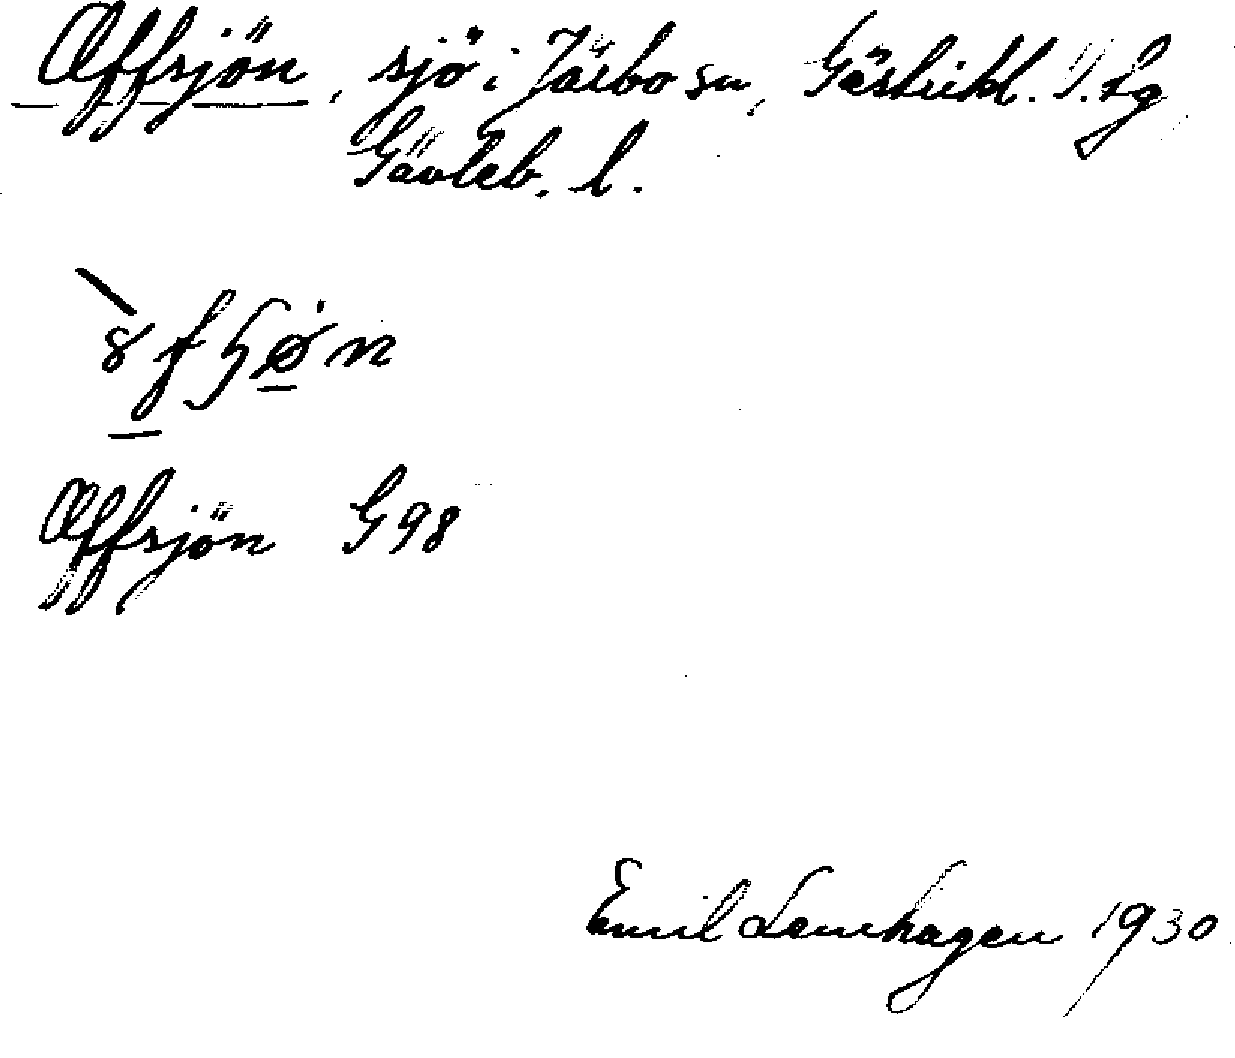 Offsjön, sjö i Järbo sn, Gästrikl. V. tg
Gävleb. l.
Offsjön G 98
Emil Lennhagen 1930